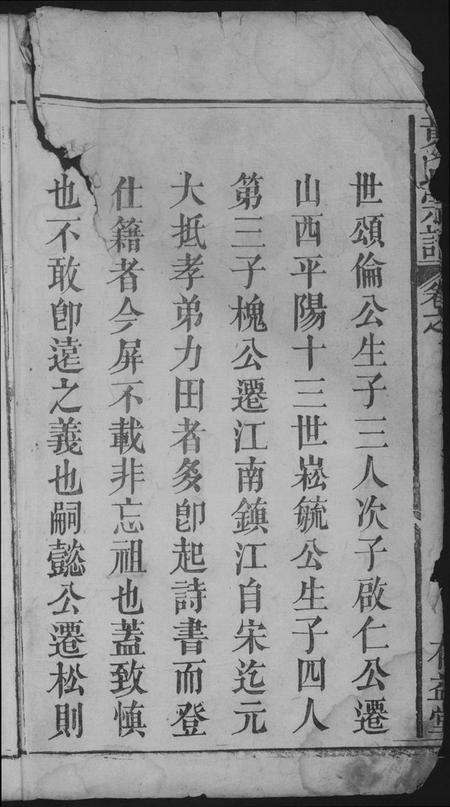 世頌倫公生子三人次子啟仁公遷
山西平陽十三世崧毓公生子四人
第三子槐公遷江南鎮江自宋迄元
大抵孝弟力田者多卽起詩書而登
仕籍者今屏不載非忘祖也蓋致慎
也不敢卽遠之義也嗣懿公遷松則
黃氏宗譜
卷之
益堂